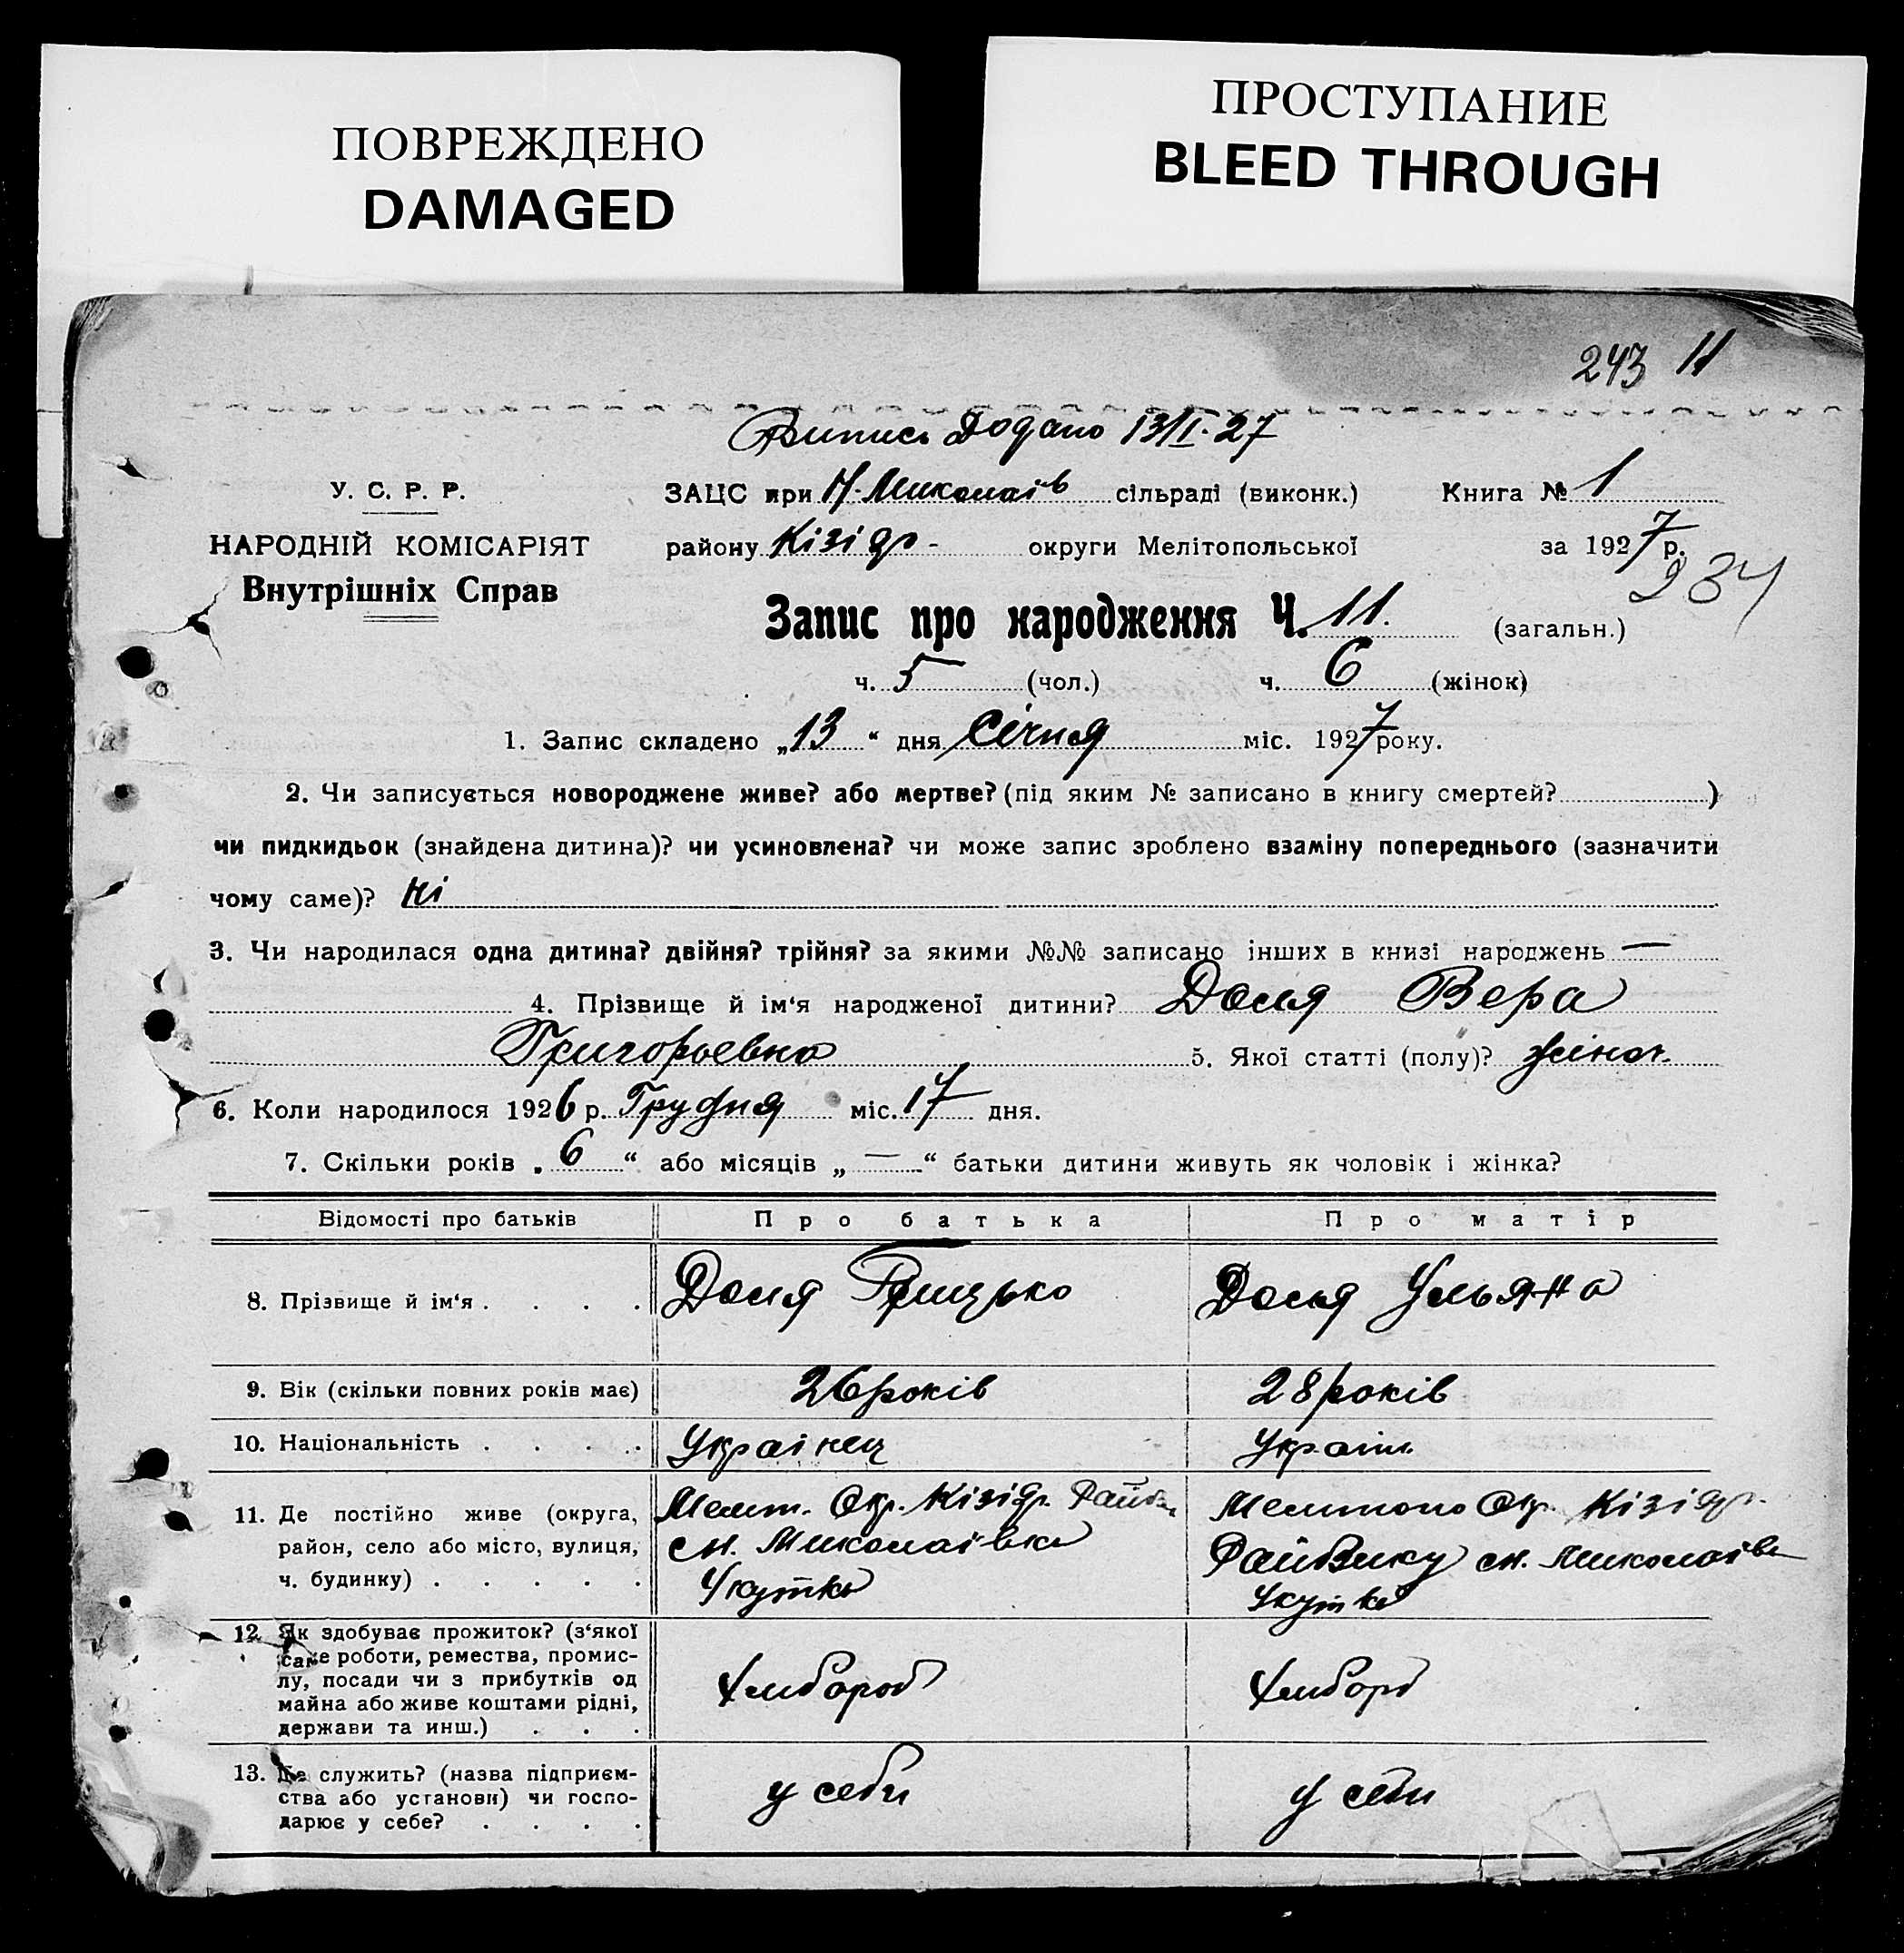 ПОВРЕЖДЕНО
DAMAGED
ПРОСТУПАНИЕ
BLEED THROUGH
243 11
Випись Додано 13/I-27
У. С. Р. Р.
НАРОДНІЙ КОМІСАРІЯТ
Внутрішніх Справ
ЗАЦС при Н-Миколаїв сільраді (виконк.) Книга № 1
району Кізідр- округи Мелітопольської за 1927 р.
234
Запис про народження Ч. 11. (загальн.)
ч. 5 (чол.) ч. 6 (жінок)
1. Запис складено „13“ дня Січня міс. 1927 року.
2. Чи записується новороджене живе? або мертве? (під яким № записано в книгу смертей? )
чи пидкидьок (знайдена дитина)? чи усиновлена? чи може запис зроблено взаміну попереднього (зазначити
чому саме)? ні
3. Чи народилася одна дитина? двійня? трійня? за якими №№ записано інших в книзі народжень —
4. Прізвище й ім‘я народженої дитини? Доля Вера
Григорьевна 5. Якої статті (полу)? жіноч.
6. Коли народилося 1926 р. Грудня міс. 17 дня.
7. Скільки років „6“ або місяців „—“ батьки дитини живуть як чоловік і жінка?
Відомості про батьків Про батька Про матір
8. Прізвище й ім‘я . . . . Доля Грицько Доля Ульяна
9. Вік (скільки повних років має) 26 років 28 років
10. Національність . . . . Українец Україн.
11. Де постійно живе (округа,
район, село або місто, вулиця,
ч. будинку) . . . . .
Мелит. Окр. Кізідр. Рай
см. Миколаівка
Мелитопо Окр. Кізідр.
РайВику см. Миколаівк
12. Як здобуває прожиток? (з‘якої
саме роботи, ремества, промис-
лу, посади чи з прибутків од
майна або живе коштами рідні,
держави та инш.) . . .
Хлибороб Хлибор
13. Де служить? (назва підприєм-
ства або установи) чи госпо-
дарює у себе? . . . .
у себи у себи